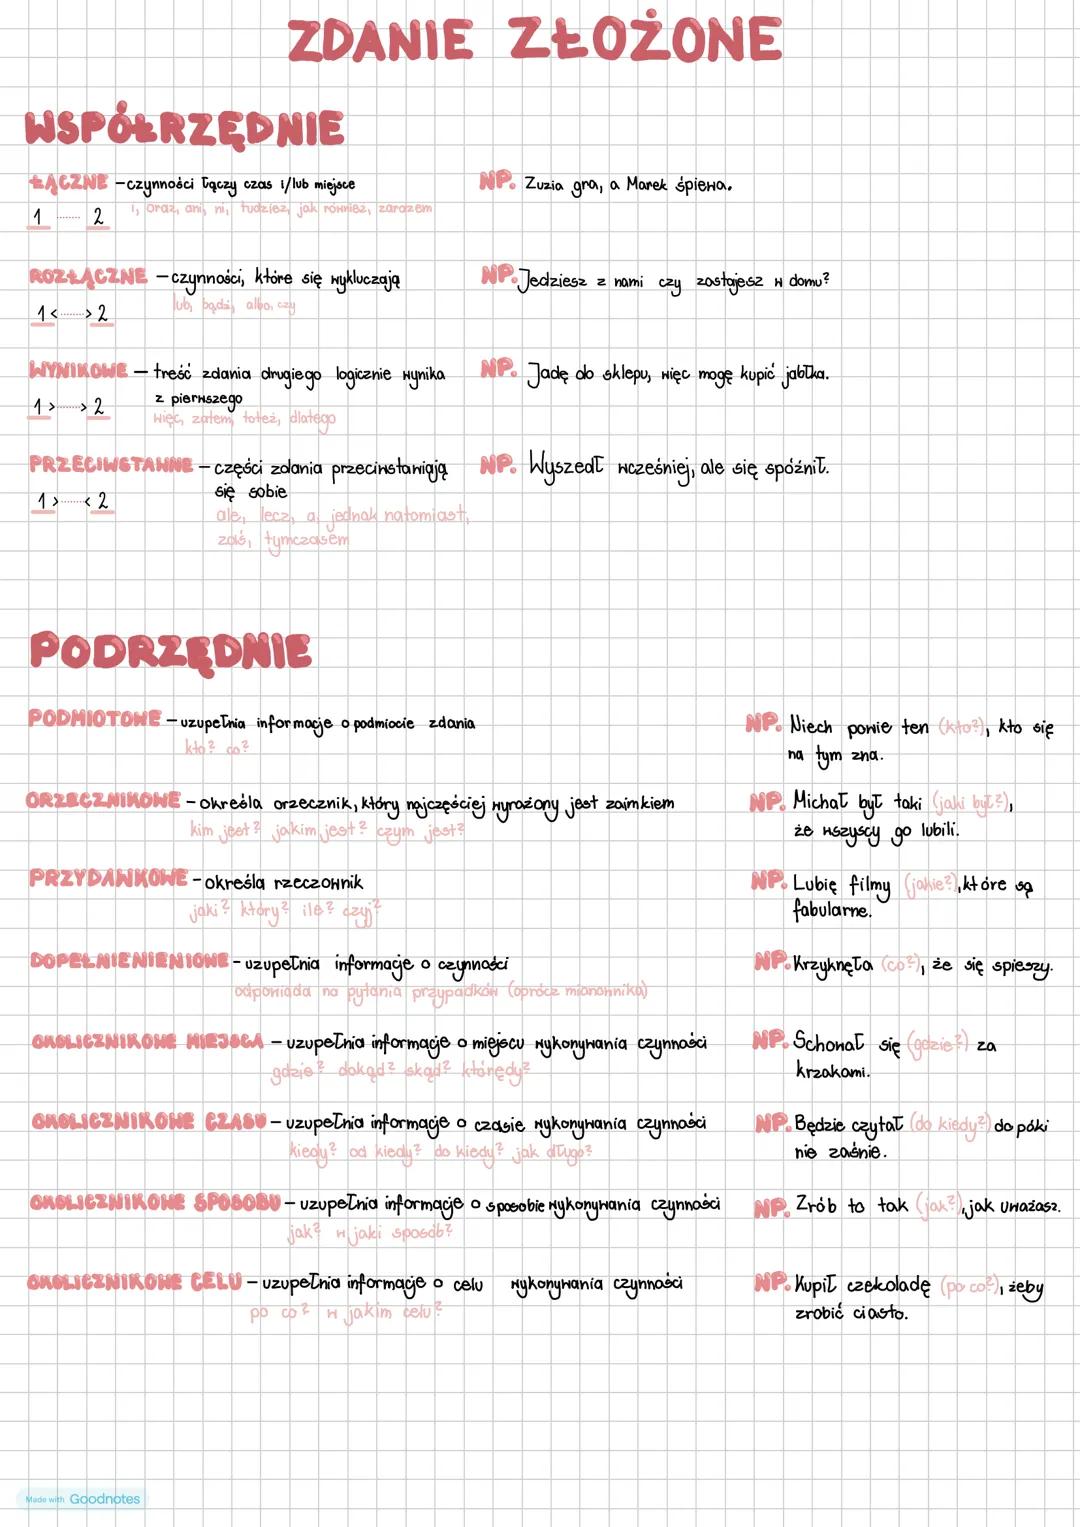 ZDANIE ZŁOŻONE
WSPÓŁRZĘDNIE
ŁĄCZNE – czynności łączy czas i/lub miejsce
i, oraz, ani, ni, tudzież, jak również, zarazem
1 ........ 2
NP. Zuzia gra, a Marek śpiewa.
ROZŁĄCZNE – czynności, które się wykluczają
lub, bądź, albo, czy
1 <.......> 2
NP. Jedziesz z nami czy zostajesz w domu?
WYNIKOWE – treść zdania drugiego logicznie wynika
z pierwszego
1 >.......> 2
więc, zatem, toteż, dlatego
NP. Jadę do sklepu, więc mogę kupić jabłka.
PRZECIWSTAWNE – części zdania przeciwstawiają
się sobie
1 >.......< 2
ale, lecz, a, jednak natomiast,
zaś, tymczasem
NP. Wyszedł wcześniej, ale się spóźnił.
PODRZĘDNIE
PODMIOTOWE – uzupełnia informacje o podmiocie zdania
kto? co?
NP. Niech powie ten (kto?), kto się
na tym zna.
ORZECZNIKOWE – określa orzecznik, który najczęściej wyrażony jest zaimkiem
kim jest? jakim jest? czym jest?
NP. Michał był taki (jaki był?),
że wszyscy go lubili.
PRZYDAWKOWE – określa rzeczownik
jaki? który? ile? czyj?
NP. Lubię filmy (jakie?), które są
fabularne.
DOPEŁNIENIENIOWE – uzupełnia informacje o czynności
odpowiada na pytania przypadków (oprócz mianownika)
NP. Krzyknęła (co?), że się spieszy.
OKOLICZNIKOWE MIEJSCA – uzupełnia informacje o miejscu wykonywania czynności
gdzie? dokąd? skąd? którędy?
NP. Schował się (gdzie?) za
krzakami.
OKOLICZNIKOWE CZASU – uzupełnia informacje o czasie wykonywania czynności
kiedy? od kiedy? do kiedy? jak długo?
NP. Będzie czytał (do kiedy?) do póki
nie zaśnie.
OKOLICZNIKOWE SPOSOBU – uzupełnia informacje o sposobie wykonywania czynności
jak? w jaki sposób?
NP. Zrób to tak (jak?), jak uważasz.
OKOLICZNIKOWE CELU – uzupełnia informacje o celu wykonywania czynności
po co? w jakim celu?
NP. Kupił czekoladę (po co?), żeby
zrobić ciasto.
Made with Goodnotes